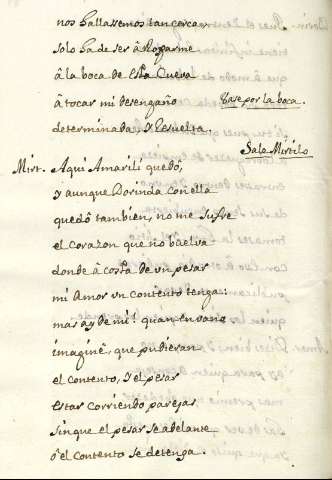 nos hallassemos tan cerca,
solo ha de ser â Roparme
â la boca de esta Cueva
â tocar mi desengaño   Vase por la boca.
determinada, y Resuelta.
Sale Mirtilo
Mirt. Aqui Amarili quedô,
y aunque Dorinda con ella
quedô tambien, no me sufre
el corazon que no buelva
donde â costa de un pesar
mi Amor un contento tenga:
mas ay de mi! quan en vano
imaginê, que pudieran
el contento, y el pesar
estar corriendo parejas
sin que el pesar se adelante
ô el contento se detenga.